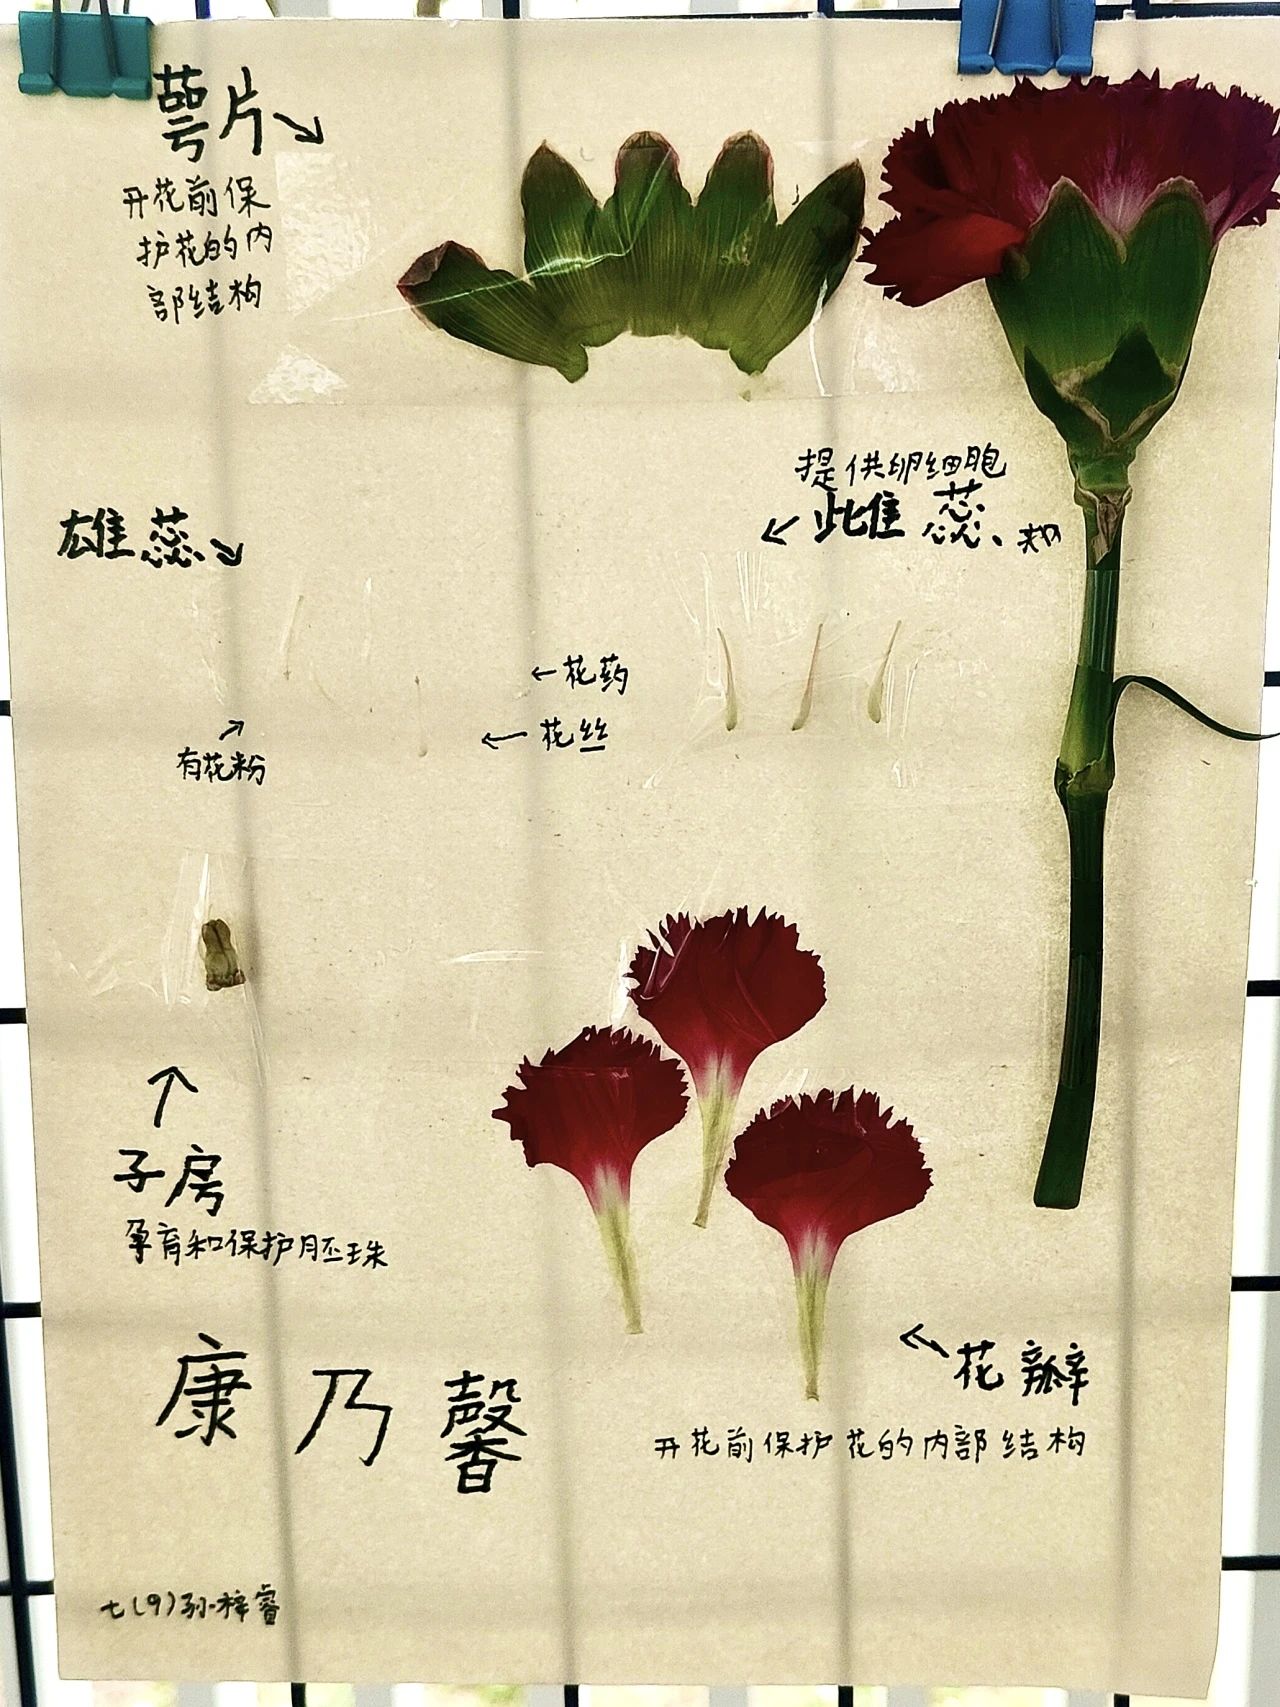 萼片
开花前保
护花的内
部结构
提供卵细胞
雌蕊、
雄蕊
花药
花丝
有花粉
子房
孕育和保护胚珠
花瓣
开花前保护花的内部结构
康乃馨
七(9)孙梓睿